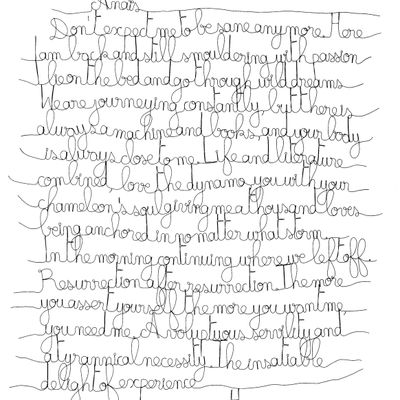 Anaïs
Don't expect me to be sane anymore. Here
I am back and still smouldering with passion
I lie on the bed and go through wild dreams
We are journeying constantly, but there is
always a machine and books, and your body
is always close to me. Life and literature
combined, love the dynamo, you with your
chameleon's soul giving me a thousand loves
being anchored in no matter what storm
In the morning continuing where we left off.
Resurrection after resurrection. The more
you assert yourself the more you want me,
you need me. A voluptuous servility and
a tyrannical necessity. The insatiable
delight of experience